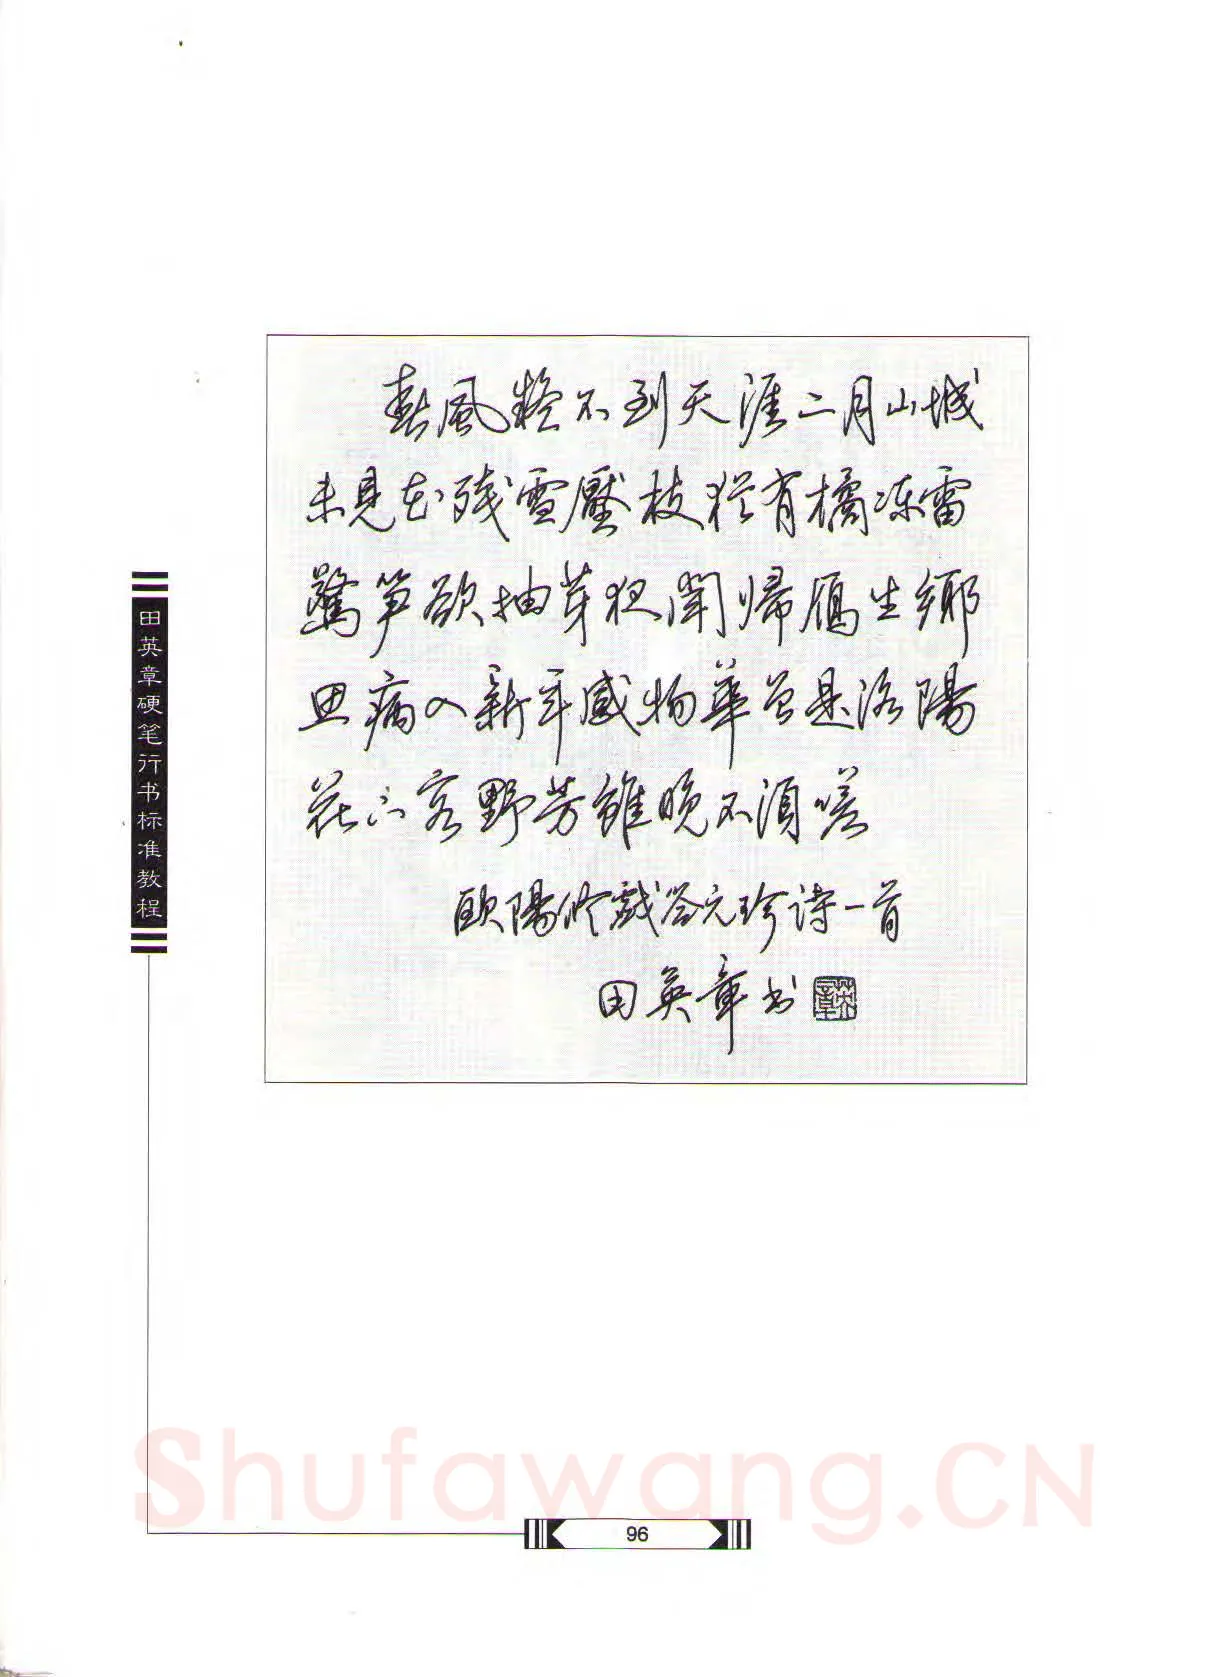 春風疑不到天涯二月山城
未見花残雪壓枝猶有橘冻雷
驚笋欲抽芽夜聞歸雁生鄉
思病入新年感物華曾是洛陽
花下客野芳雖晚不須嗟
歐陽修戲答元珍诗一首
田英章书
英章
田英章硬笔行书标准教程
Shufawang.CN
96